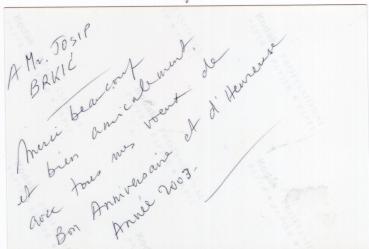 A Mr. JOSIP
BRKIĆ
Merci beaucoup
et bien amicalement.
avec tous mes voeux de
Bon Anniversaire et d'Heureuse
Année 2003.